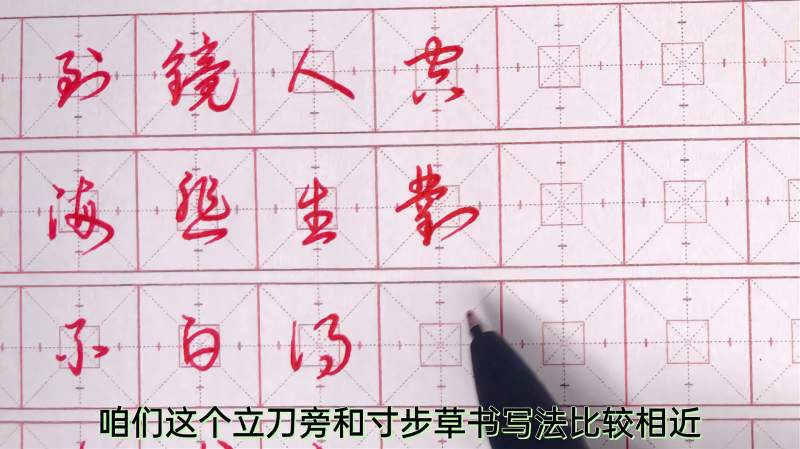 到镜人
海生對
不白得
咱们这个立刀旁和寸步草书写法比较相近